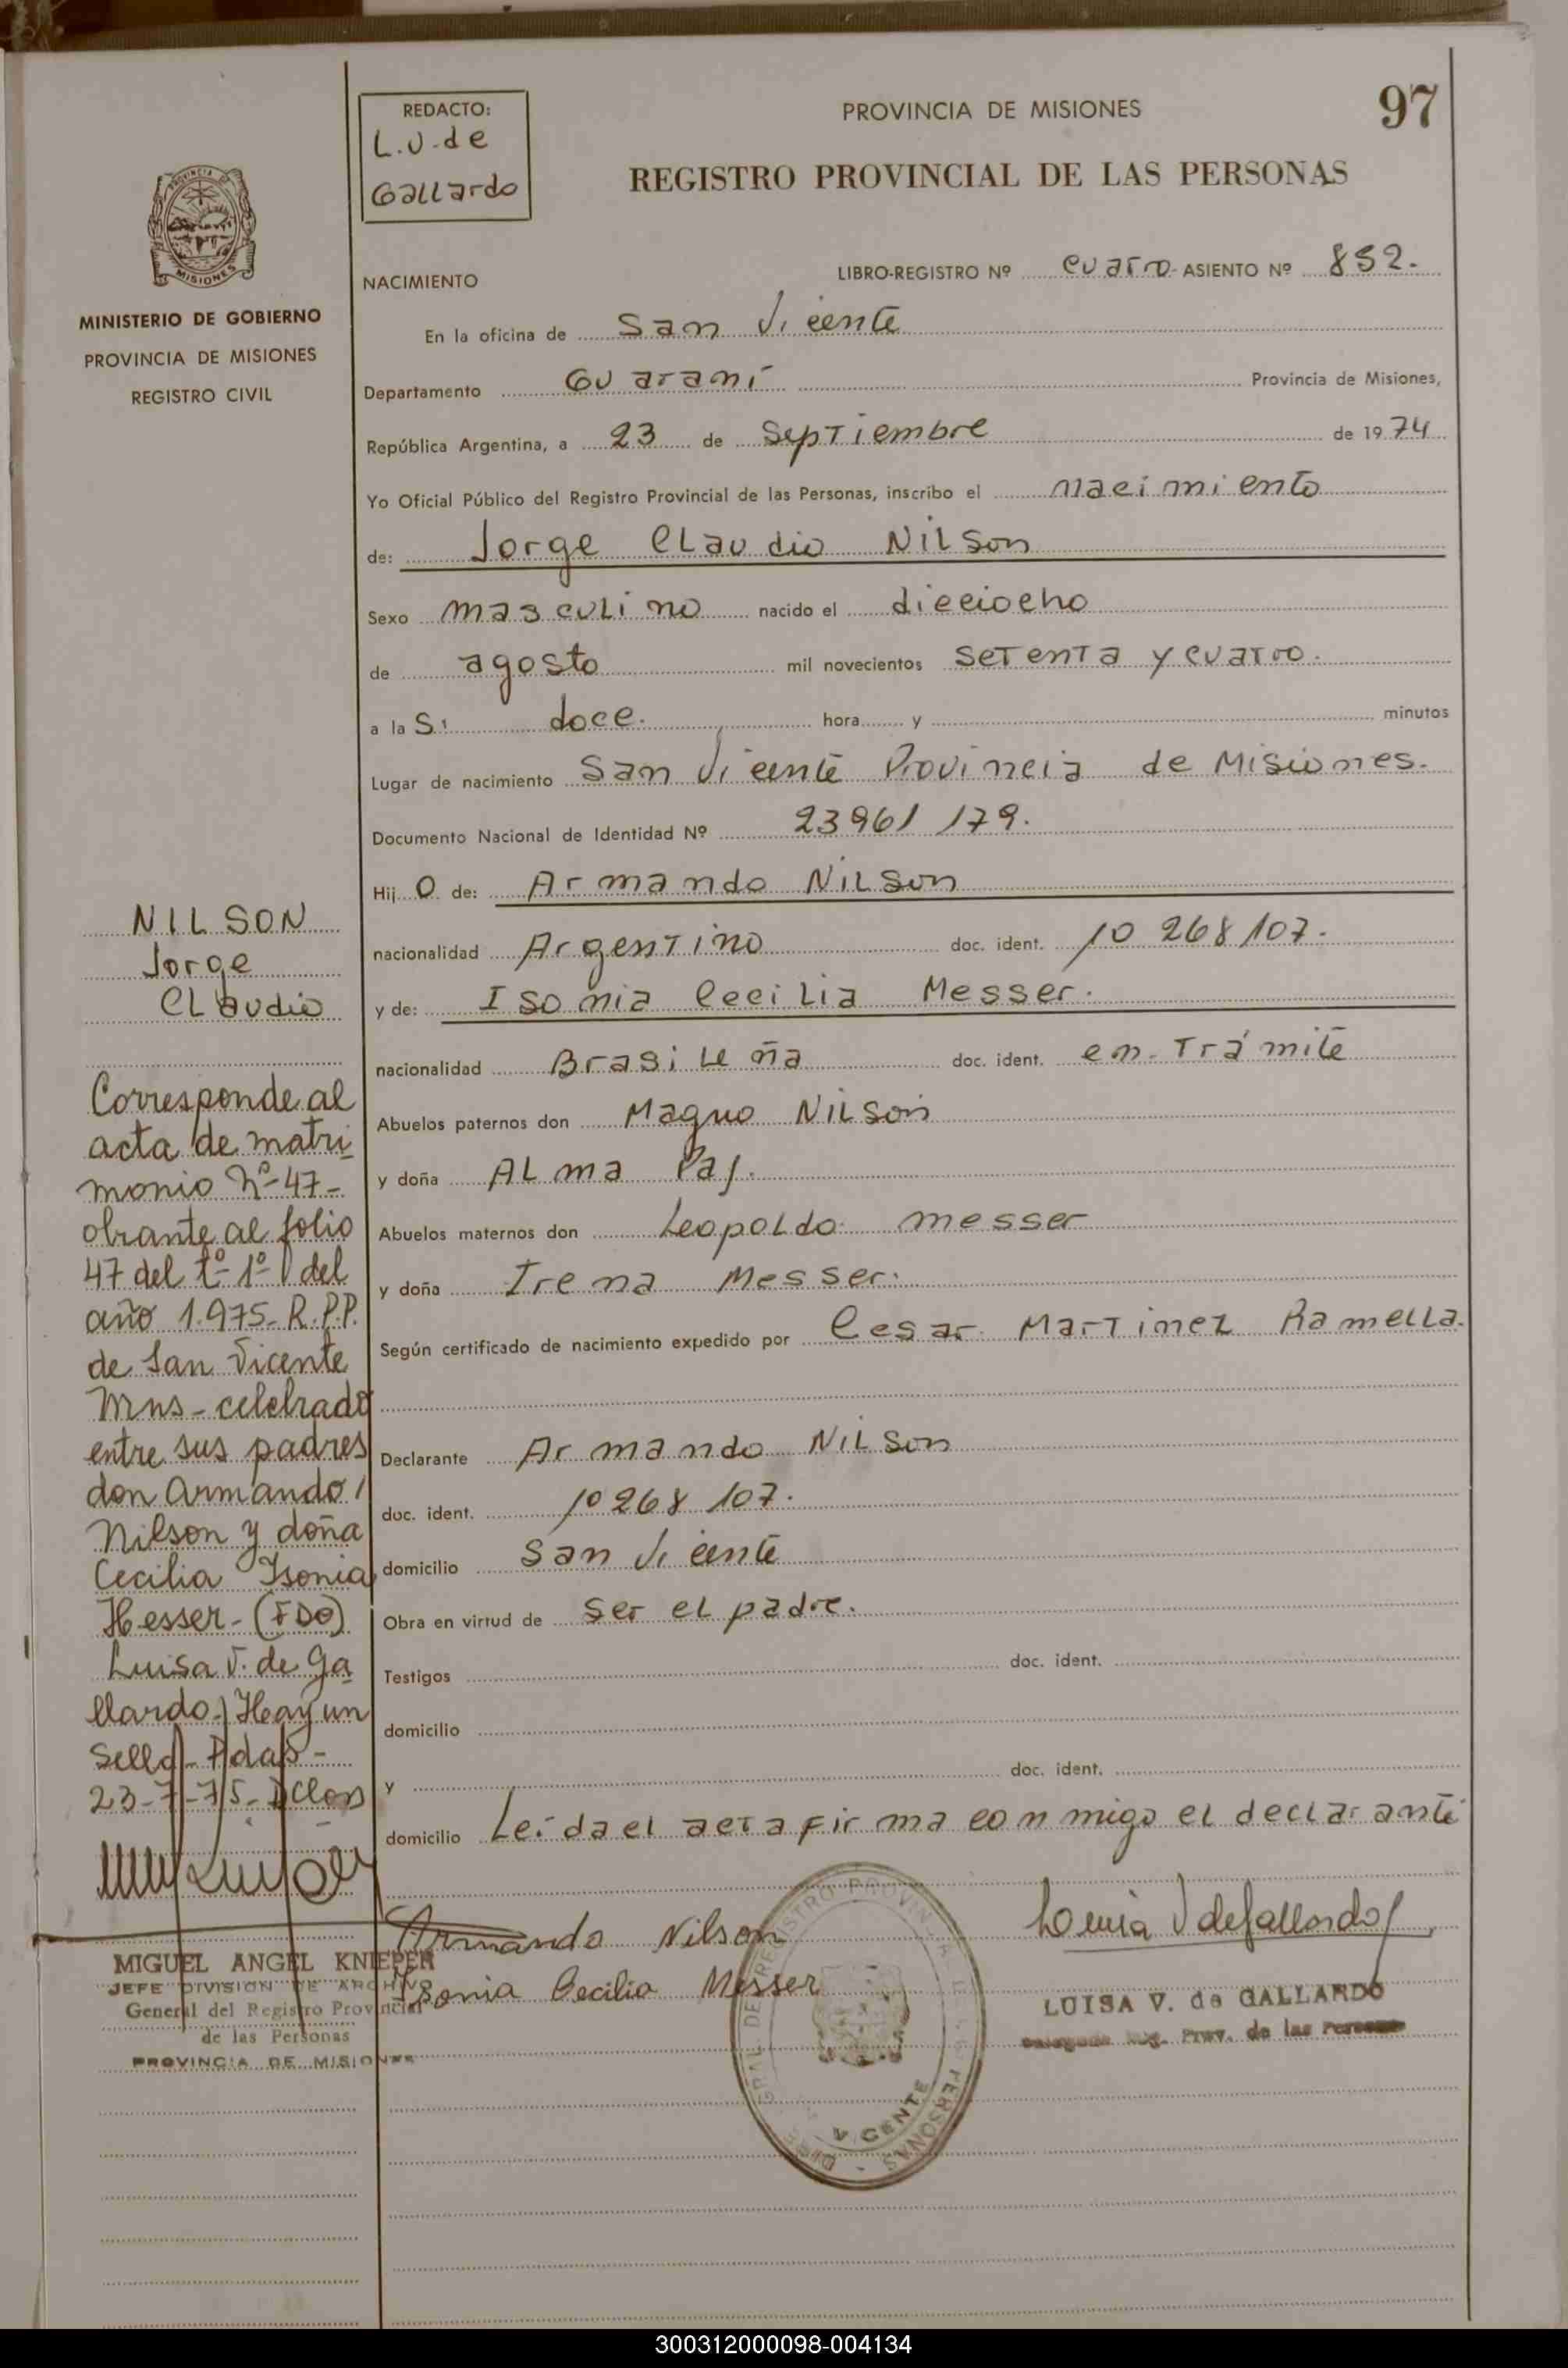 97
REDACTO:
L.V. de
Gallardo
PROVINCIA DE MISIONES
REGISTRO PROVINCIAL DE LAS PERSONAS
PROVINCIA
MISIONES
MINISTERIO DE GOBIERNO
PROVINCIA DE MISIONES
REGISTRO CIVIL
NACIMIENTO
LIBRO-REGISTRO Nº cuatro ASIENTO Nº 852.
En la oficina de San Vicente
Departamento Guaraní Provincia de Misiones,
República Argentina, a 23 de Septiembre de 1974
Yo Oficial Público del Registro Provincial de las Personas, inscribo el nacimiento
de: Jorge Claudio Nilson
Sexo masculino nacido el dieciocho
de agosto mil novecientos setenta y cuatro.
a la S: doce. hora y minutos
Lugar de nacimiento San Vicente Provincia de Misiones.
Documento Nacional de Identidad Nº 23961179.
Hij o de: Armando Nilson
nacionalidad Argentino doc. ident. 10 268107.
y de: Isonia Cecilia Messer.
nacionalidad Brasileña doc. ident. en trámite
Abuelos paternos don Magno Nilson
y doña Alma
Abuelos maternos don Leopoldo Messer
y doña Irena Messer.
Según certificado de nacimiento expedido por Cesar Martinez Ramella.
Declarante Armando Nilson
doc. ident. 10268 107.
domicilio San Vicente
Obra en virtud de ser el padre.
Testigos doc. ident.
domicilio
y doc. ident.
domicilio Leída el acta firma conmigo el declarante
Armando Nilson
Isonia Cecilia Messer
Luisa V de Gallardo
LUISA V. de GALLARDO
Reg. Prov. de las Personas
REGISTRO PROVINCIAL DE LAS PERSONAS
VICENTE
NILSON
Jorge
Claudio
Corresponde al
acta de matri
monio Nº 47-
obrante al folio
47 del tº 1º del
año 1.975- R.P.P.
de San Vicente
Mns- celebrado
entre sus padres
don Armando
Nilson y doña
Cecilia Isonia
Hesser- (FDO)
Luisa V. de Ga
llardo) Hay un
sello- Pdas-
23-7-75-
MIGUEL ANGEL KNIEPER
JEFE DIVISION DE ARCHIVO
General del Registro Provincial
de las Personas
PROVINCIA DE MISIONES
300312000098-004134